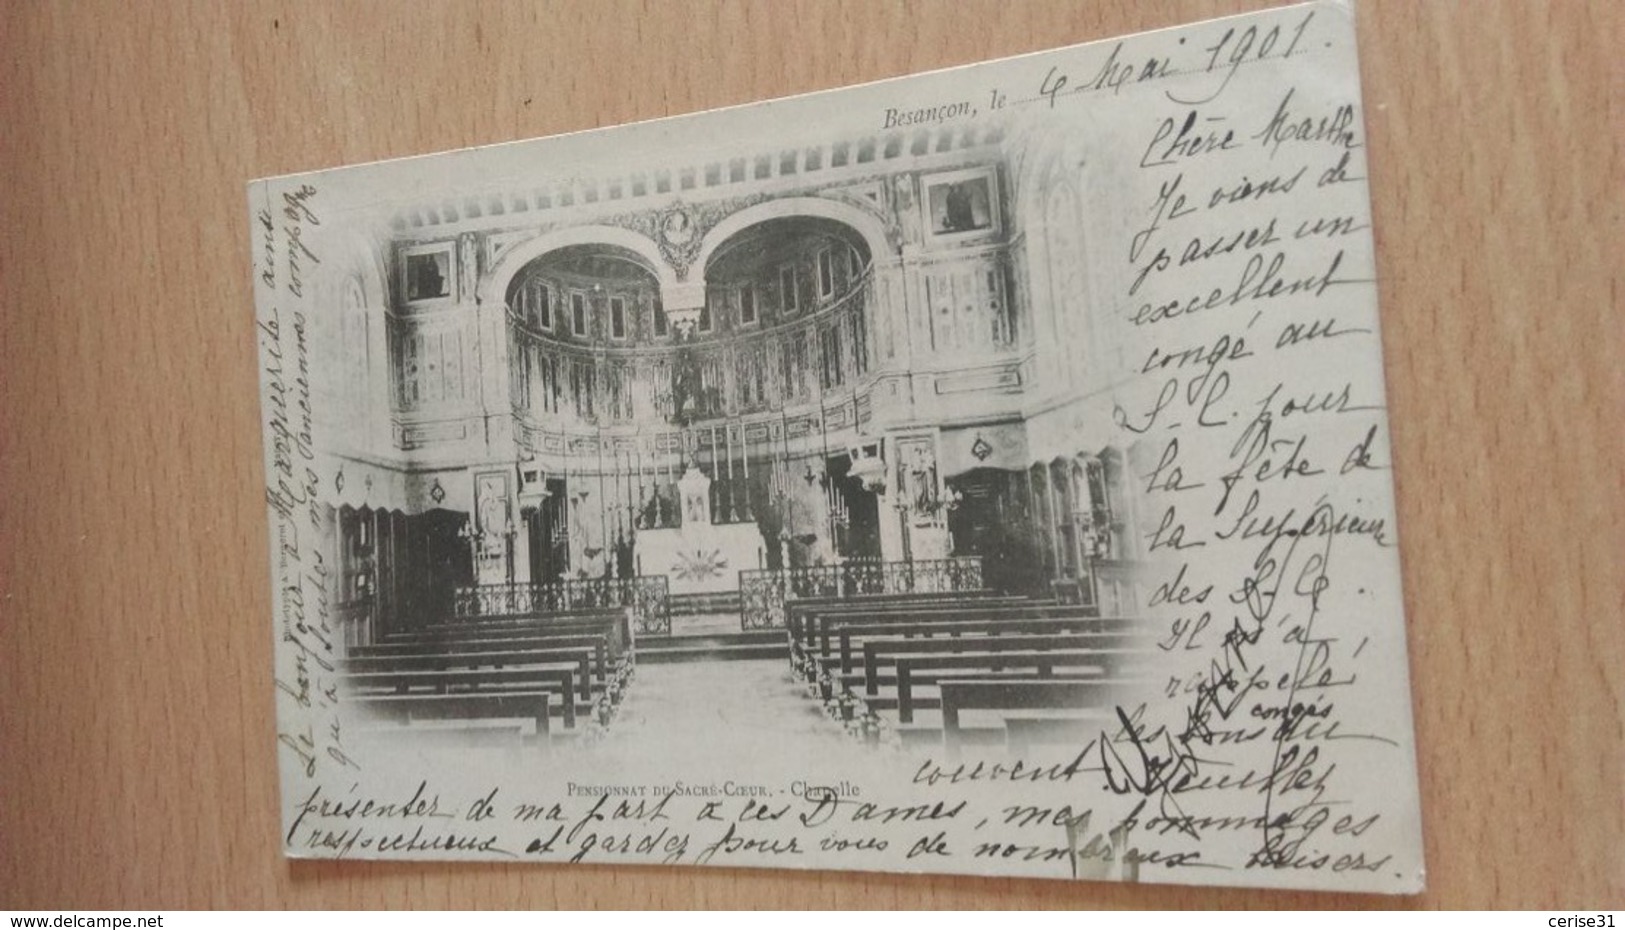 Besançon, le 4 Mai 1901.
Chère Marthe
Je viens de
passer un
excellent
congé au
S. C. pour
la fête de
la Supérieure
des S. C.
Il m'a
rappelé
congés
les bons du
couvent. Veuillez
PENSIONNAT DU SACRÉ-CŒUR. - Chapelle
présenter de ma part à ces Dames, mes hommages
respectueux et gardez pour vous de nombreux baisers.
Le bonjour à Marguerite ainsi
qu'à toutes mes anciennes compagnes
www.delcampe.net
cerise31